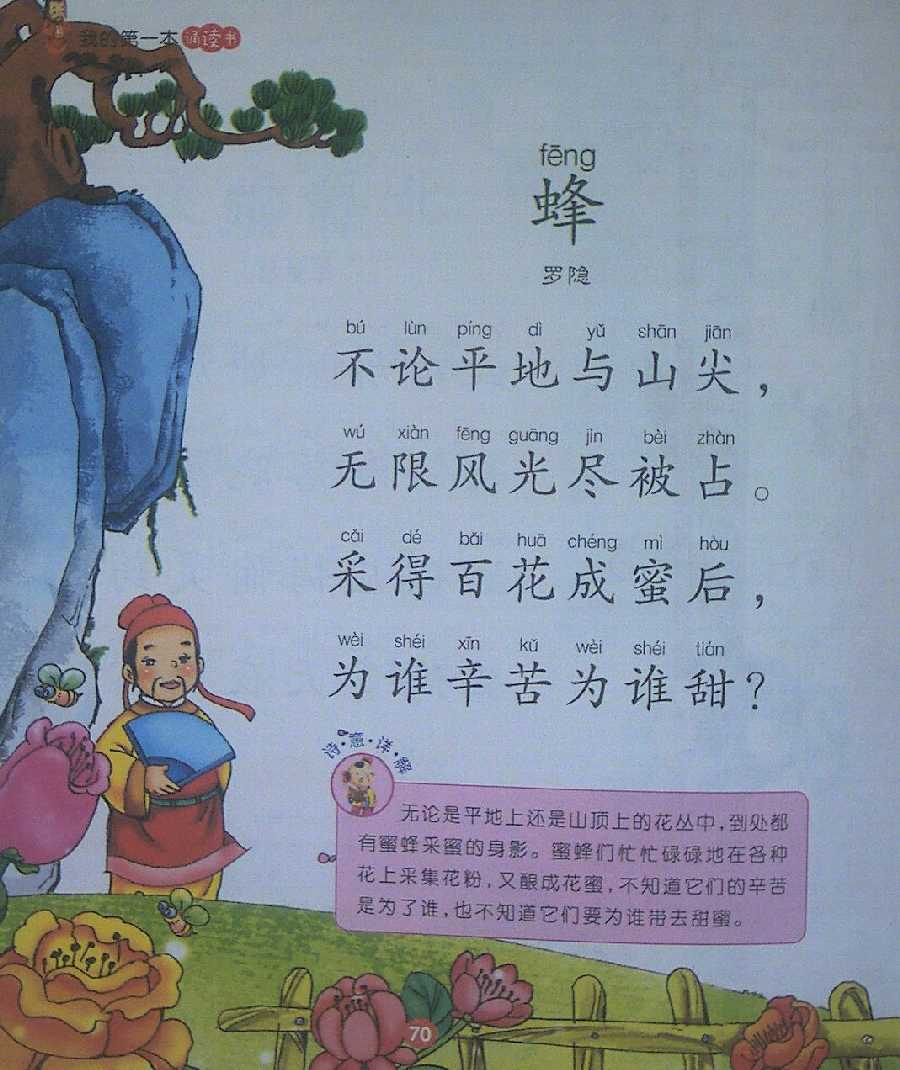 我的第一本诵读书
fēng
蜂
罗隐
bú lùn píng dì yǔ shān jiān
不论平地与山尖，
wú xiàn fēng guāng jìn bèi zhàn
无限风光尽被占。
cǎi dé bǎi huā chéng mì hòu
采得百花成蜜后，
wèi shéi xīn kǔ wèi shéi tián
为谁辛苦为谁甜？
诗·意·详·解
无论是平地上还是山顶上的花丛中，到处都
有蜜蜂采蜜的身影。蜜蜂们忙忙碌碌地在各种
花上采集花粉，又酿成花蜜，不知道它们的辛苦
是为了谁，也不知道它们要为谁带去甜蜜。
70